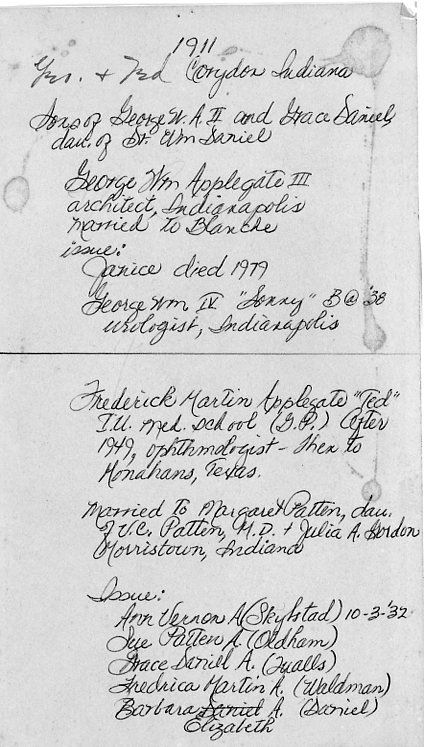 1911
Geo. + Ted Corydon Indiana
Sons of George W. A. II and Grace Daniel,
dau. of Dr. Wm Daniel
George Wm Applegate III
architect, Indianapolis
married to Blanche
issue:
Janice died 1979
George Wm IV "Sonny" B @ '38
urologist, Indianapolis
Frederick Martin Applegate "Ted"
I.U. Med. School (G.P.) After
1949, ophthmologist - then to
Monahans, Texas.
Married to Margaret Patten, dau.
of V.C. Patten, M.D. + Julia A. Gordon
Morristown, Indiana
Issue:
Ann Vernon A (Skylstad) 10-3-'32
Sue Patten A. (Oldham)
Grace Daniel A. (Qualls)
Fredrica Martin A. (Waldman)
Barbara Daniel A. (Daniel)
Elizabeth